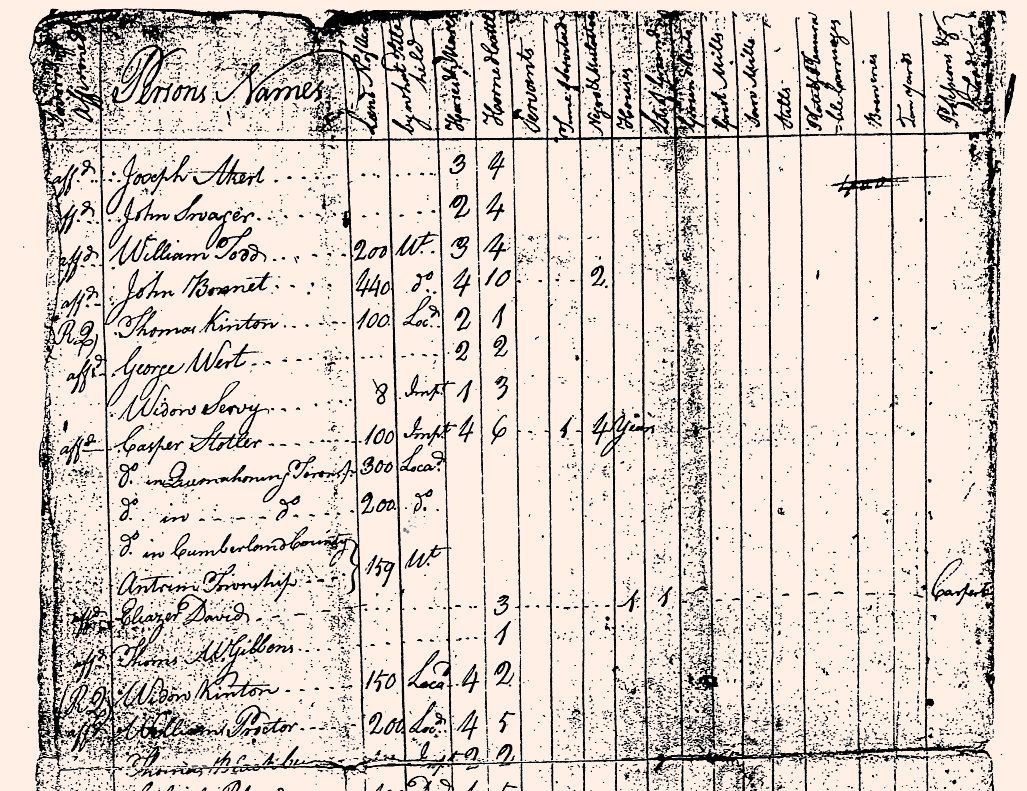 Sworn or Affirmed Persons Names Land Pr Acres by what Title held Horses & Mares Horned Cattle Servants Time of Servitude Negro & Mulattoes Houses Grist Mills Saw Mills Stills Brewries Tanyards
affd. Joseph Akerl 3 4
affd. John Swager 2 4
affd. William Todd 200 Wt. 3 4
affd. John Bonnet 440 do. 4 10 2
(R.2) Thomas Kinton 100 Locd. 2 1
affd. George Wert 2 2
Widow Servy 8 Impt 1 3
affd. Casper Stotler 100 Impt 4 6 1 4 Years
do. in Quemahoning Townsp. 300 Locad.
do. in do. 200 do.
do. in Cumberland County
Antrim Township } 159 Wt
affd. Eliazer David 3 1 1 Carpentr
affd. Thoms McGibbons 1
(R.2) Widow Kinton 150 Locad. 4 2
affd. William Proctor 200 Locd. 4 5
Thomas 2 2